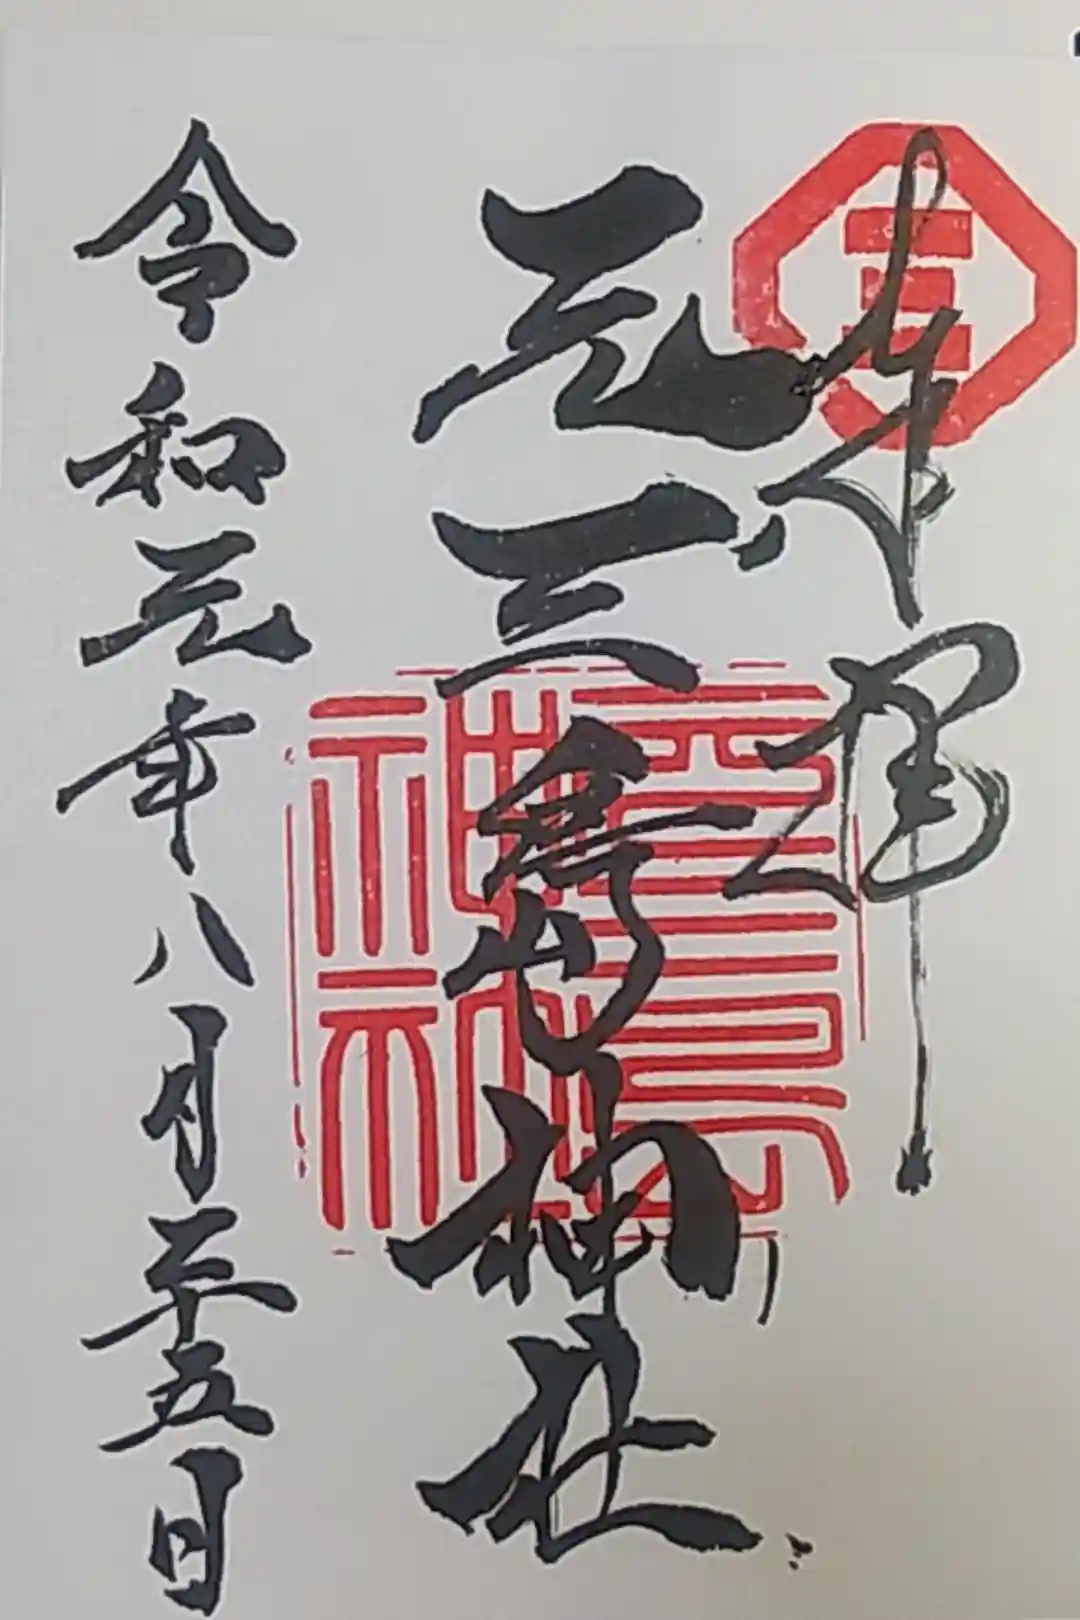 奉拝
三
元三島神社
令和元年八月二十五日